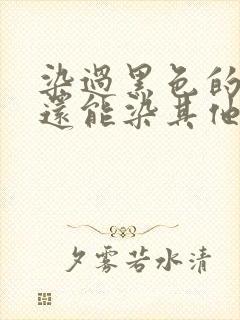 染過黑色的
還能染其他
夕雾若水清